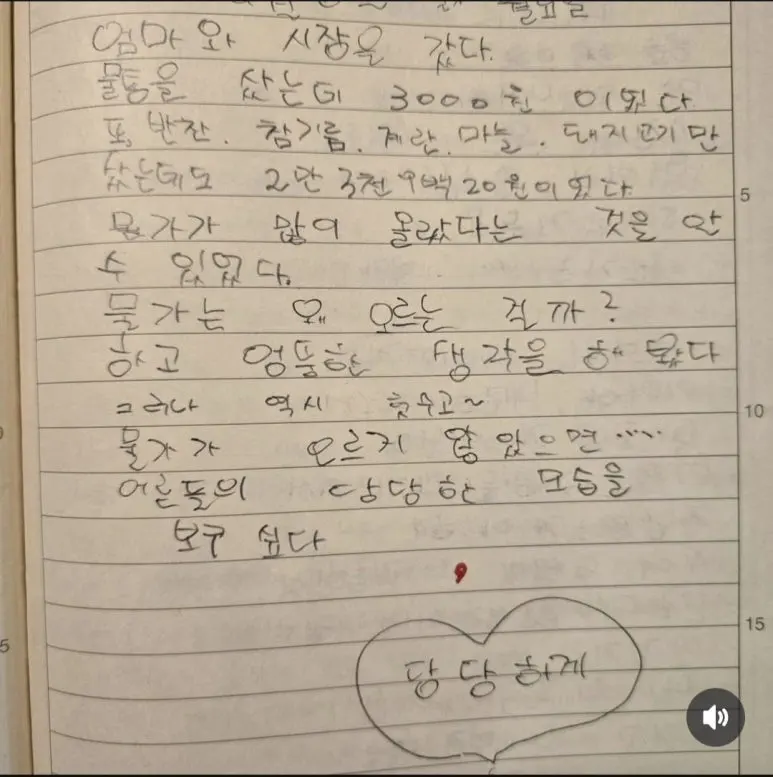 월요일
엄마와 시장을 갔다.
물통을 샀는데 3000원 이였다
또, 반찬. 참기름. 계란. 마늘. 돼지고기만
샀는데도 2만 3천 9백 20원이 였다
물가가 많이 올랐다는 것을 안
수 있었다.
물가는 왜 오르는 걸까?
하고 엉뚱한 생각을 해 봤다
그러나 역시 헛수고~
물가가 오르지 않았으면.....
어른들의 당당한 모습을
보구 싶다
당당하게
5
10
15
5